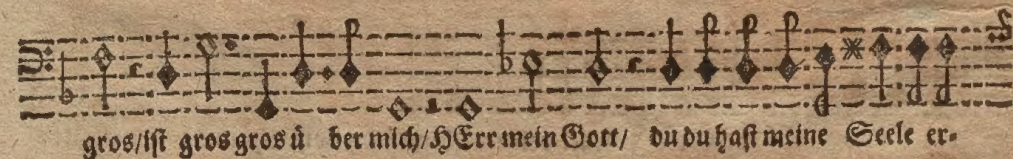 gros/ist gros gros ü ber mich/HErr mein Gott/ du du hast meine Seele er-